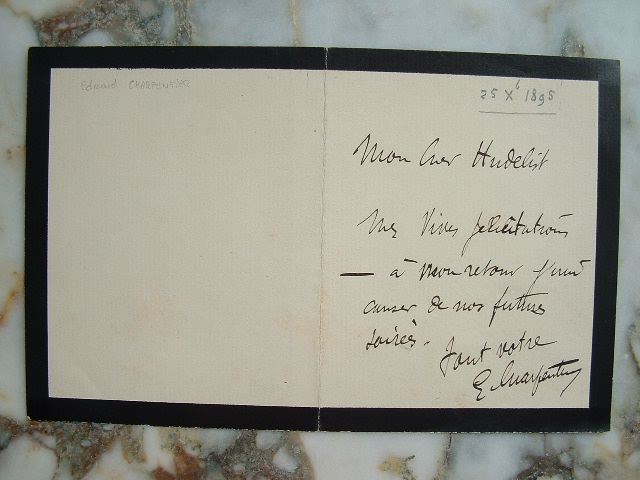 Edmond CHARPENTIER
25 Xᵇ 1895
Mon Cher Hudelist
Mes Vives félicitations
— à mon retour j'irai
causer de nos futures
soirées. Tout votre
E. Charpentier